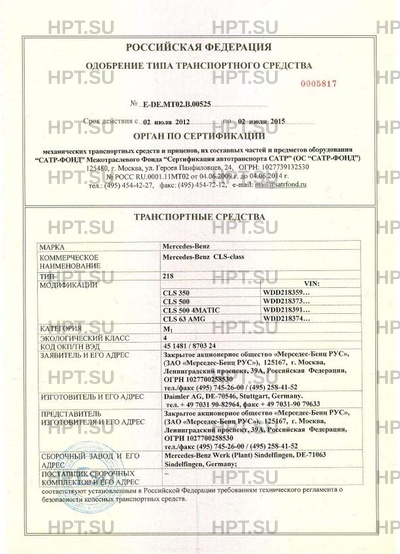 HPT.SU HPT.SU HPT.SU
РОССИЙСКАЯ ФЕДЕРАЦИЯ
ОДОБРЕНИЕ ТИПА ТРАНСПОРТНОГО СРЕДСТВА
0005817
№ E-DE.MT02.B.00525
Срок действия с 02 июля 2012 по 02 июля 2015
ОРГАН ПО СЕРТИФИКАЦИИ
механических транспортных средств и прицепов, их составных частей и предметов оборудования
“САТР-ФОНД” Межотраслевого Фонда “Сертификация автотранспорта САТР” (ОС “САТР-ФОНД”)
125480, г. Москва, ул. Героев Панфиловцев, 24, ОГРН: 1027739132530
№ РОСС RU.0001.11МТ02 от 04.06.2009 г. до 04.06.2014 г.
тел.: (495) 454-42-27, факс: (495) 454-72-12, e-mail: mail@satrfond.ru
ТРАНСПОРТНЫЕ СРЕДСТВА
МАРКА Mercedes-Benz
КОММЕРЧЕСКОЕ НАИМЕНОВАНИЕ Mercedes-Benz CLS-class
ТИП 218
МОДИФИКАЦИИ VIN:
CLS 350 WDD218359...
CLS 500 WDD218373...
CLS 500 4MATIC WDD218391...
CLS 63 AMG WDD218374...
КАТЕГОРИЯ M1
ЭКОЛОГИЧЕСКИЙ КЛАСС 4
КОД ОКП/ТН ВЭД 45 1481 / 8703 24
ЗАЯВИТЕЛЬ И ЕГО АДРЕС Закрытое акционерное общество «Мерседес-Бенц РУС»,
(ЗАО «Мерседес-Бенц РУС»), 125167, г. Москва,
Ленинградский проспект, 39А, Российская Федерация,
ОГРН 1027700258530
тел./факс (495) 745-26-00 / (495) 258-41-52
ИЗГОТОВИТЕЛЬ И ЕГО АДРЕС Daimler AG, DE-70546, Stuttgart, Germany.
тел. + 49 7031 90-82964, факс + 49 7031-90 79633
ПРЕДСТАВИТЕЛЬ ИЗГОТОВИТЕЛЯ И ЕГО АДРЕС Закрытое акционерное общество «Мерседес-Бенц РУС»,
(ЗАО «Мерседес-Бенц РУС»), 125167, г. Москва,
Ленинградский проспект, 39А, Российская Федерация,
ОГРН 1027700258530
тел./факс (495) 745-26-00 / (495) 258-41-52
СБОРОЧНЫЙ ЗАВОД И ЕГО АДРЕС Mercedes-Benz Werk (Plant) Sindelfingen, DE-71063
Sindelfingen, Germany;
ПОСТАВЩИК СБОРОЧНЫХ КОМПЛЕКТОВ И ЕГО АДРЕС –
соответствуют установленным в Российской Федерации требованиям технического регламента о
безопасности колесных транспортных средств.
HPT.SU HPT.SU HPT.SU